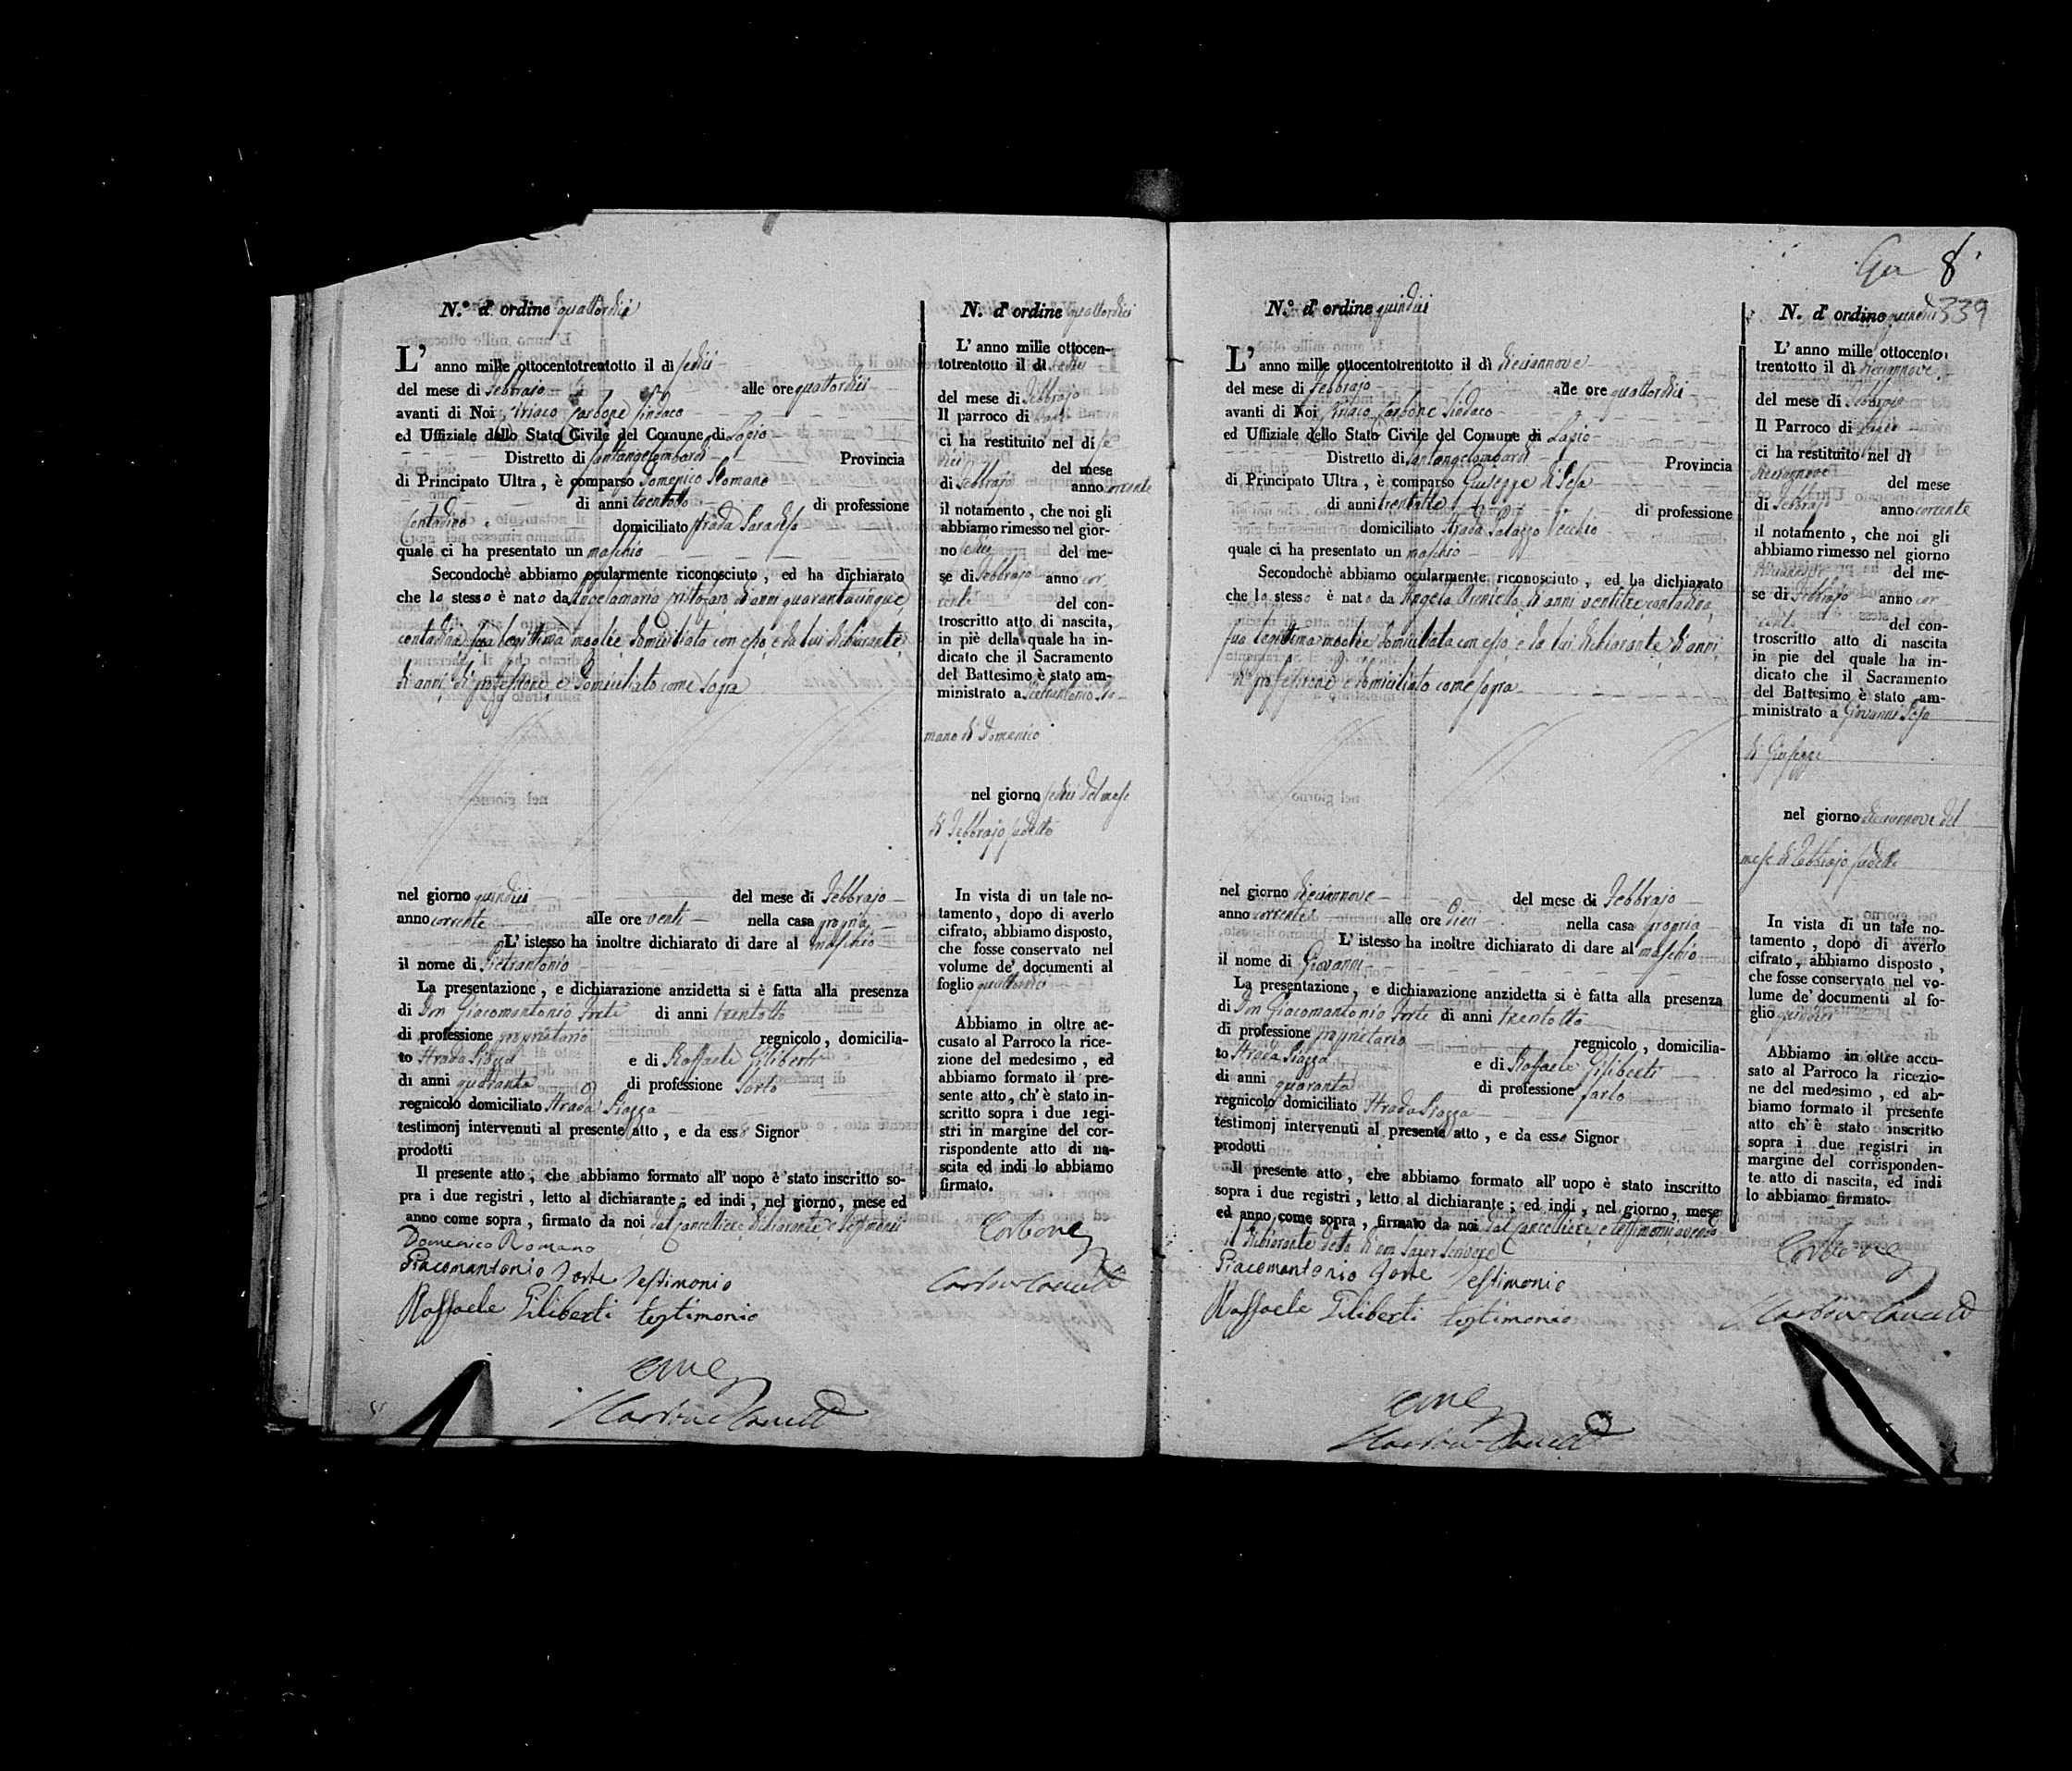 N.° d' ordine quattordici
L' anno mille ottocentotrentotto il di sedici
del mese di Febbrajo alle ore quattordici
avanti di Noi Ciriaco Carbone Sindaco
ed Uffiziale dello Stato Civile del Comune di Lapio
Distretto di Santangelombardi Provincia
di Principato Ultra , è comparso Domenico Romano
di anni trentotto di professione
Contadino domiciliato strada
quale ci ha presentato un maschio
Secondochè abbiamo ocularmente riconosciuto , ed ha dichiarato
che lo stesso è nato da Angelamaria Cristofaro di anni quarantacinque
contadina sua legittima moglie domiciliata con esso, e da lui dichiarante,
di anni, di professione, e domiciliato come sopra
nel giorno quindici del mese di Febbrajo
anno corrente alle ore venti nella casa propria
L' istesso ha inoltre dichiarato di dare al maschio
il nome di Pietrantonio
La presentazione , e dichiarazione anzidetta si è fatta alla presenza
di Don Giacomantonio Forte di anni trentotto
di professione proprietario regnicolo , domicilia-
to Strada Piazza e di Raffaele Giliberti
di anni quaranta di professione Sarto
regnicolo domiciliato Strada Piazza
testimonj intervenuti al presente atto , e da esso Signor
prodotti
Il presente atto , che abbiamo formato all' uopo è stato inscritto so-
pra i due registri , letto al dichiarante ; ed indi , nel giorno, mese ed
anno come sopra , firmato da noi, dal Cancelliere, dichiarante, e testimonj
Domenico Romano
Giacomantonio Forte Testimonio
Raffaele Giliberti testimonio
N. d' ordine quattordici
L' anno mille ottocen-
totrentotto il di sedici
del mese di Febbrajo
Il parroco di Lapio
ci ha restituito nel di se
dici del mese
di Febbrajo anno corrente
il notamento , che noi gli
abbiamo rimesso nel gior-
no sedici del me-
se di Febbrajo anno cor
rente del con-
troscritto atto di nascita,
in piè della quale ha in-
dicato che il Sacramento
del Battesimo è stato am-
ministrato a Pietrantonio Ro-
mano di Domenico
nel giorno sedici del mese
di Febbrajo sudetto
In vista di un tale no-
tamento , dopo di averlo
cifrato, abbiamo disposto,
che fosse conservato nel
volume de' documenti al
foglio quattordici
Abbiamo in oltre ac-
cusato al Parroco la rice-
zione del medesimo , ed
abbiamo formato il pre-
sente atto, ch' è stato in-
scritto sopra i due regi-
stri in margine del cor-
rispondente atto di na-
scita ed indi lo abbiamo
firmato.
Carbone
Gen 8
339
N.° d' ordine quindici
L' anno mille ottocentotrentotto il di diciannove
del mese di Febbrajo alle ore quattordici
avanti di Noi Ciriaco Carbone Sindaco
ed Uffiziale dello Stato Civile del Comune di Lapio
Distretto di Santangelombardi Provincia
di Principato Ultra , è comparso Giuseppe di Sesa
di anni trentatre di professione
domiciliato Strada Palazzo Vecchio
quale ci ha presentato un maschio
Secondochè abbiamo ocularmente riconosciuto , ed ha dichiarato
che lo stesso è nato da Angela di anni ventitre contadina,
sua legittima moglie domiciliata con esso, e da lui dichiarante, di anni,
di professione e domiciliato come sopra
nel giorno diciannove del mese di Febbrajo
anno corrente alle ore dieci nella casa propria
L' istesso ha inoltre dichiarato di dare al maschio
il nome di Giovanni
La presentazione, e dichiarazione anzidetta si è fatta alla presenza
di Don Giacomantonio Forte di anni trentotto
di professione proprietario regnicolo , domicilia-
to Strada Piazza e di Raffaele Giliberti
di anni quaranta di professione sarto
regnicolo domiciliato Strada Piazza
testimonj intervenuti al presente atto , e da esso Signor
prodotti
Il presente atto , che abbiamo formato all' uopo è stato inscritto
sopra i due registri , letto al dichiarante ; ed indi , nel giorno, mese
ed anno come sopra , firmato da noi, dal Cancelliere, e testimonj avendo
il dichiarante detto di non saper scrivere
Giacomantonio Forte Testimonio
Raffaele Giliberti testimonio
N. d' ordine quindici
L' anno mille ottocento
trentotto il di diciannove
del mese di Febbrajo
Il Parroco di Lapio
ci ha restituito nel dì
diciannove del mese
di Febbrajo anno corrente
il notamento , che noi gli
abbiamo rimesso nel giorno
diciannove del me-
se di Febbrajo anno cor
rente del con-
troscritto atto di nascita
in pie del quale ha in-
dicato che il Sacramento
del Battesimo è stato am-
ministrato a Giovanni Sesa
di Giuseppe
nel giorno diciannove del
mese di Febbrajo sudetto
In vista di un tale no-
tamento , dopo di averlo
cifrato, abbiamo disposto ,
che fosse conservato nel vo-
lume de' documenti al fo-
glio quindici
Abbiamo in oltre accu-
sato al Parroco la ricezio-
ne del medesimo , ed ab-
biamo formato il presente
atto ch' è stato inscritto
sopra i due registri in
margine del corrisponden-
te atto di nascita, ed indi
lo abbiamo firmato.
Carbone